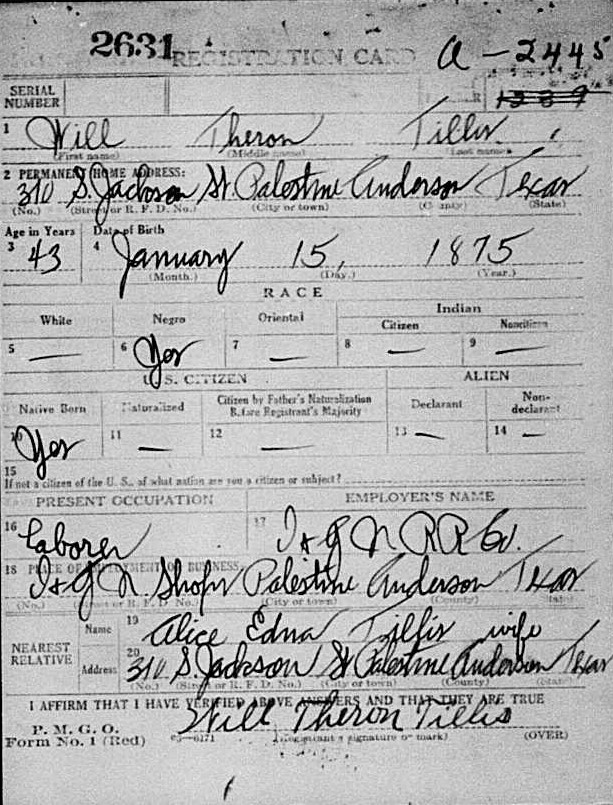 2631 REGISTRATION CARD A-2445
SERIAL NUMBER 1289
1 Will Theron Tillis
(First name) (Middle name) (Last name)
2 PERMANENT HOME ADDRESS:
310 S. Jackson St. Palestine Anderson Texas
(No.) (Street or R. F. D. No.) (City or town) (County) (State)
Age in Years Date of Birth
3 43 4 January 15, 1875
(Month.) (Day.) (Year.)
RACE
White Negro Oriental Indian
Citizen Noncitizen
5 — 6 Yes 7 — 8 — 9 —
U. S. CITIZEN ALIEN
Native Born Naturalized Citizen by Father's Naturalization Before Registrant's Majority Declarant Non-declarant
10 Yes 11 — 12 — 13 — 14 —
15
If not a citizen of the U. S., of what nation are you a citizen or subject?
PRESENT OCCUPATION EMPLOYER'S NAME
16 Laborer 17 I + G N R R Co.
18 PLACE OF EMPLOYMENT OR BUSINESS:
I + G N. Shops Palestine Anderson Texas
(No.) (Street or R. F. D. No.) (City or town) (County) (State)
NEAREST RELATIVE
Name 19 Alice Edna Tillis wife
Address 20 310 S. Jackson St Palestine Anderson Texas
(No.) (Street or R. F. D. No.) (City or town) (County) (State)
I AFFIRM THAT I HAVE VERIFIED ABOVE ANSWERS AND THAT THEY ARE TRUE
P. M. G. O.
Form No. 1 (Red) c3—6171 Will Theron Tillis
(Registrant's signature or mark) (OVER)